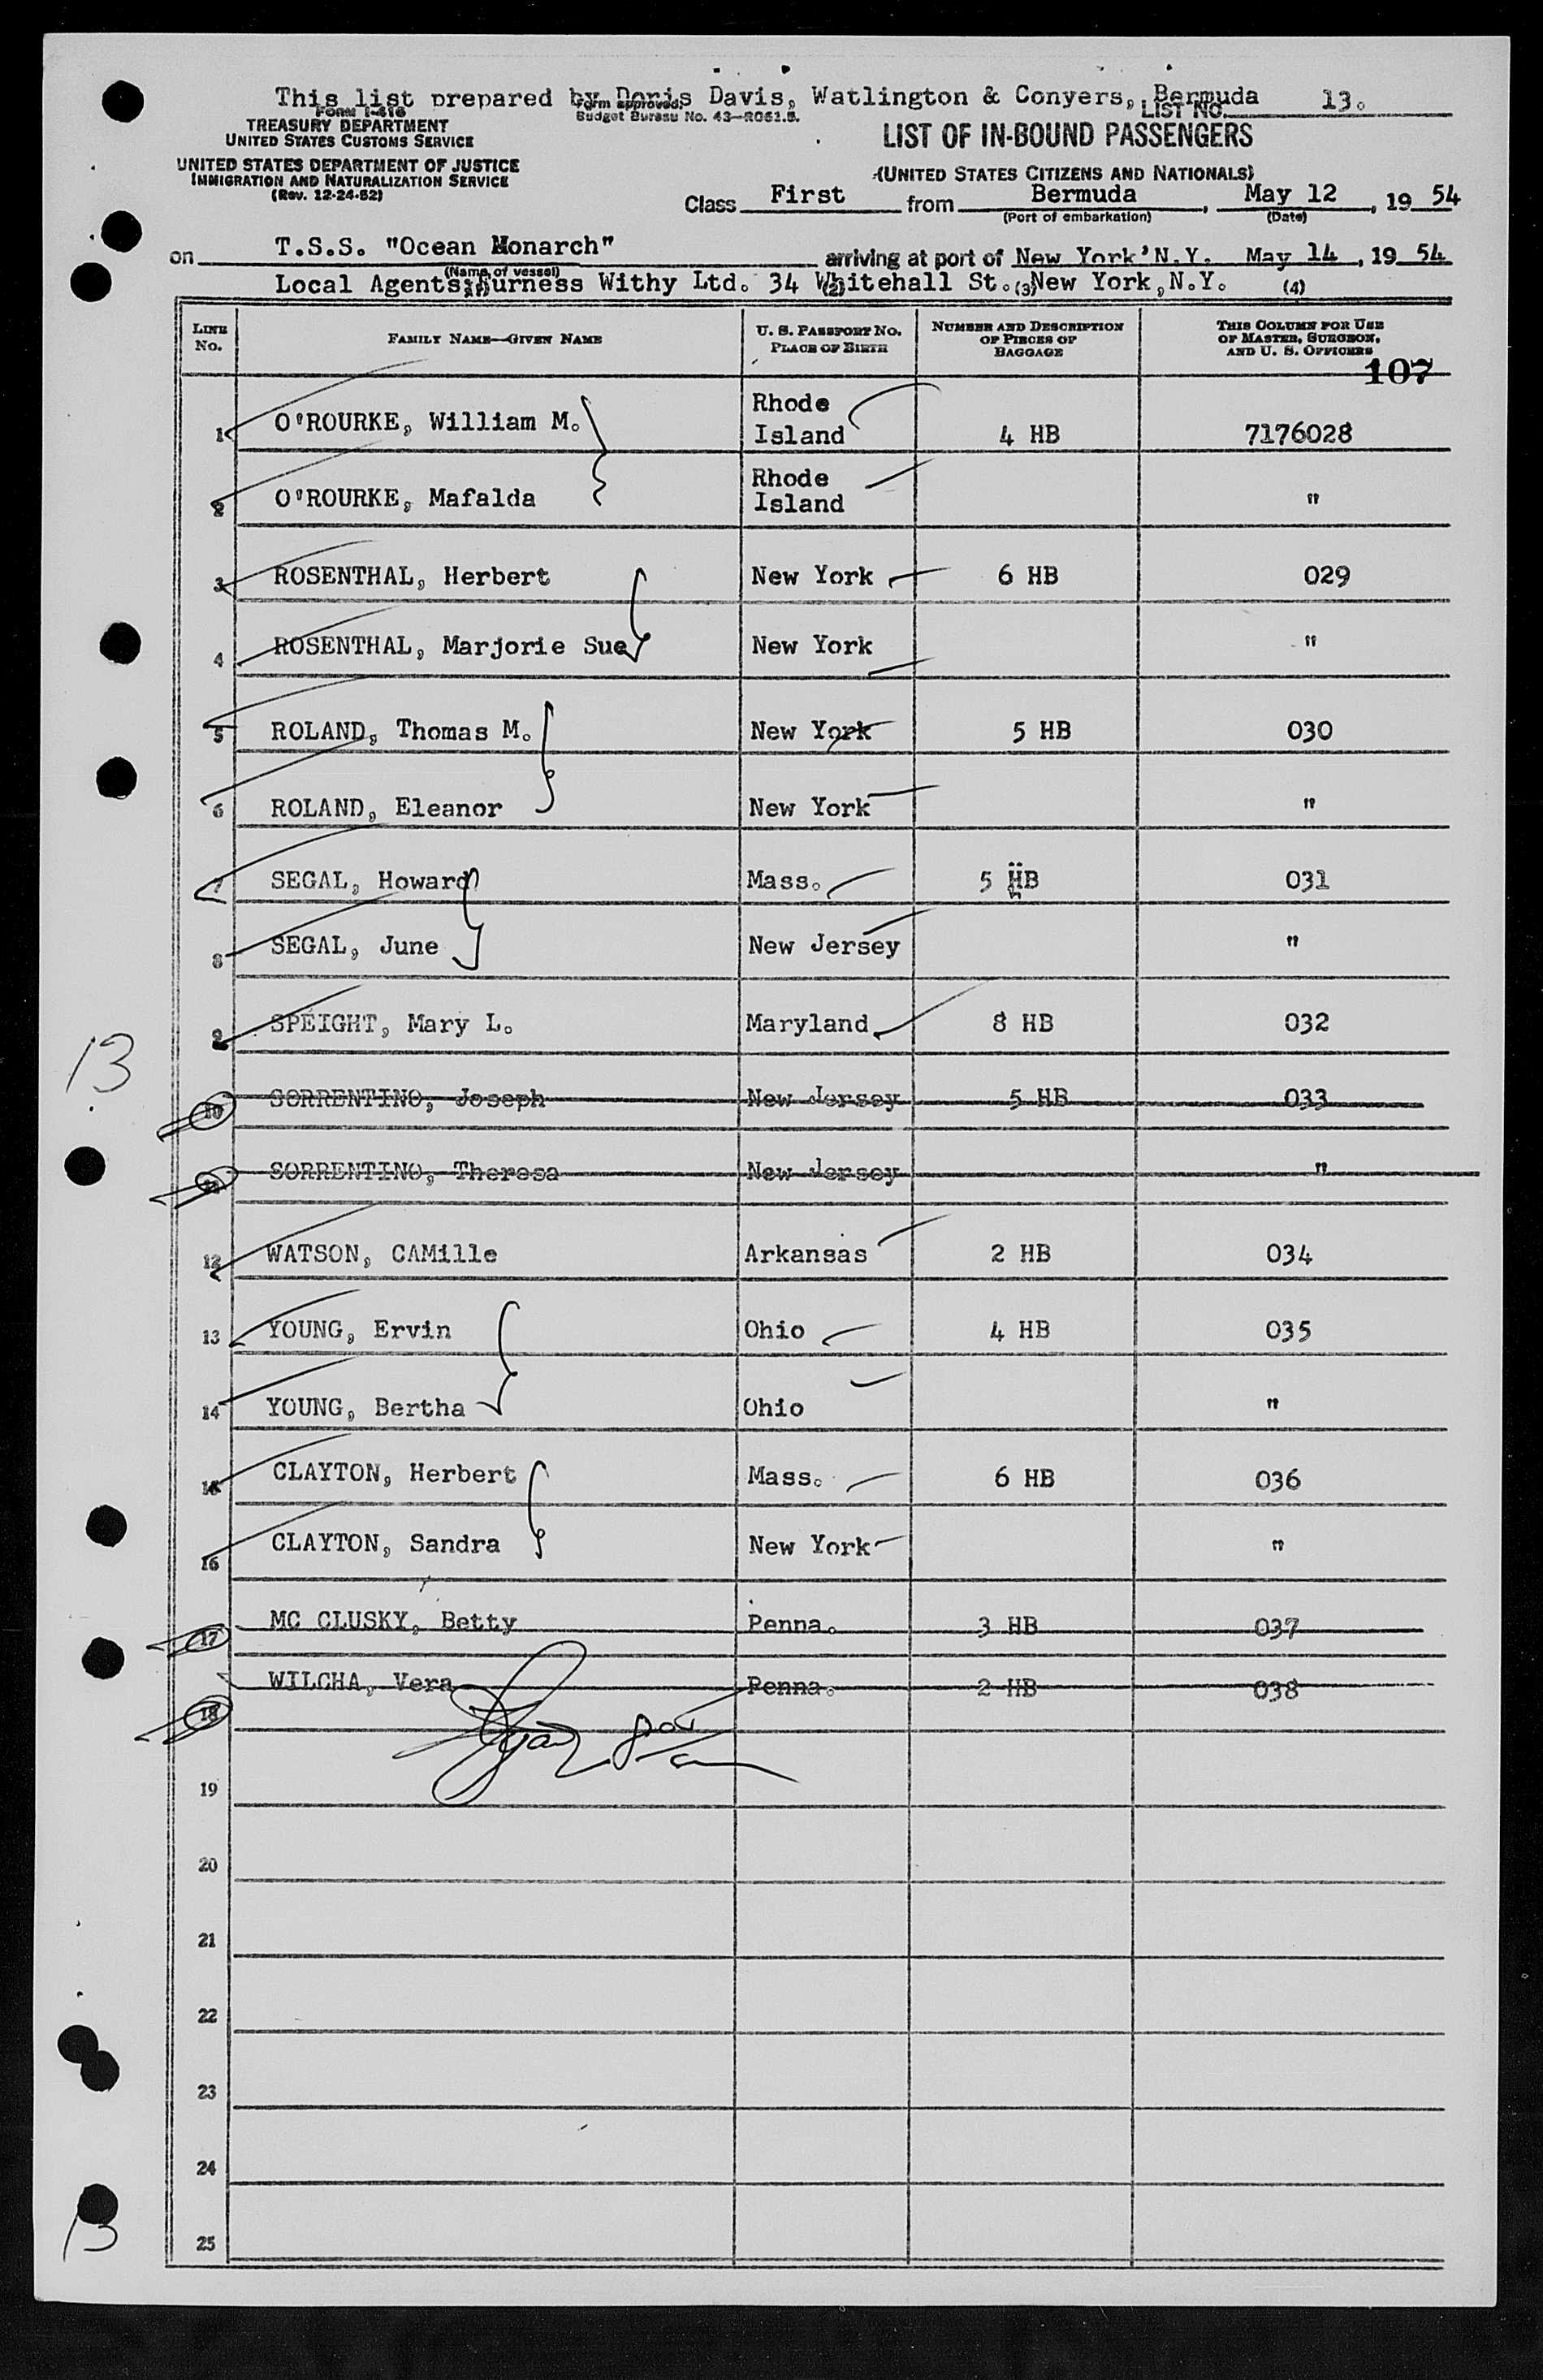 This list prepared by Doris Davis, Watlington & Conyers, Bermuda 13.
Form I-418
Form approved.
LIST NO.
TREASURY DEPARTMENT
Budget Bureau No. 43-R061.5.
UNITED STATES CUSTOMS SERVICE
LIST OF IN-BOUND PASSENGERS
UNITED STATES DEPARTMENT OF JUSTICE
IMMIGRATION AND NATURALIZATION SERVICE
(UNITED STATES CITIZENS AND NATIONALS)
(Rev. 12-24-52)
Class First from Bermuda, May 12, 19 54
(Port of embarkation) (Date)
on T.S.S. "Ocean Monarch" arriving at port of New York, N.Y. May 14, 19 54
(Name of vessel)
Local Agents: Furness Withy Ltd. 34 Whitehall St. New York, N.Y.
(2) (3) (4)
LINE No. FAMILY NAME—GIVEN NAME U. S. PASSPORT No. PLACE OF BIRTH NUMBER AND DESCRIPTION OF PIECES OF BAGGAGE THIS COLUMN FOR USE OF MASTER, SURGEON, AND U. S. OFFICERS
107
1 O'ROURKE, William M. Rhode Island 4 HB 7176028
2 O'ROURKE, Mafalda Rhode Island "
3 ROSENTHAL, Herbert New York 6 HB 029
4 ROSENTHAL, Marjorie Sue New York "
5 ROLAND, Thomas M. New York 5 HB 030
6 ROLAND, Eleanor New York "
7 SEGAL, Howard Mass. 5 HB 031
8 SEGAL, June New Jersey "
9 SPEIGHT, Mary L. Maryland 8 HB 032
13
10 SORRENTINO, Joseph New Jersey 5 HB 033
11 SORRENTINO, Theresa New Jersey "
12 WATSON, CAMille Arkansas 2 HB 034
13 YOUNG, Ervin Ohio 4 HB 035
14 YOUNG, Bertha Ohio "
15 CLAYTON, Herbert Mass. 6 HB 036
16 CLAYTON, Sandra New York "
17 MC CLUSKY, Betty Penna. 3 HB 037
18 WILCHA, Vera Penna. 2 HB 038
19
20
21
22
23
24
25
13